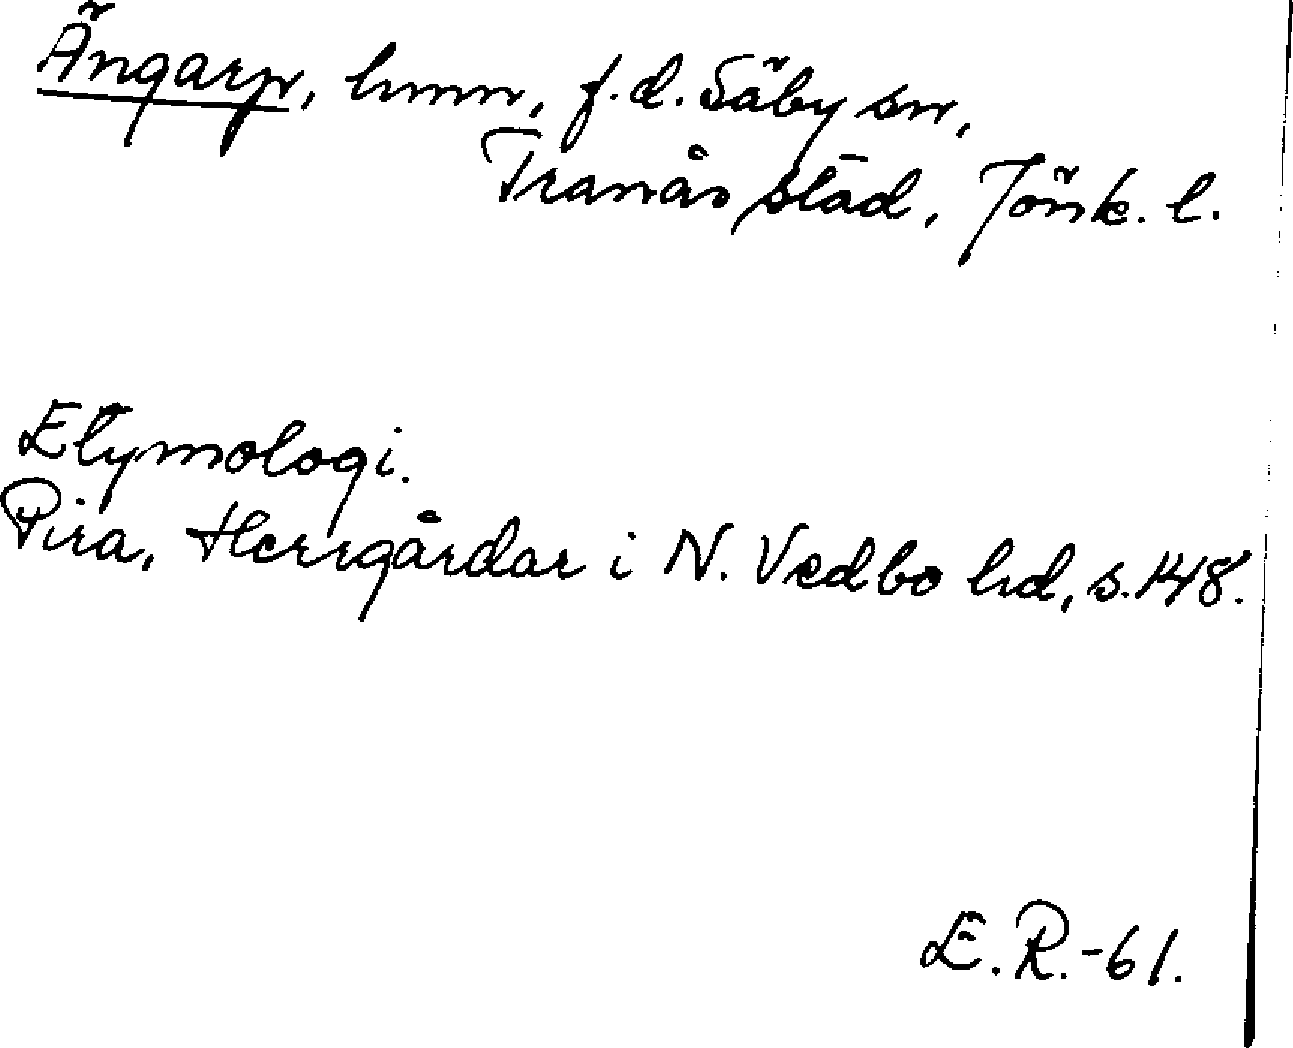 Ängarp, hmn, f.d. Säby sn,
Tranås stad, Jönk. l.
Etymologi.
Pira, Herrgårdar i N. Vedbo hd, s. 148.
E. R.-61.